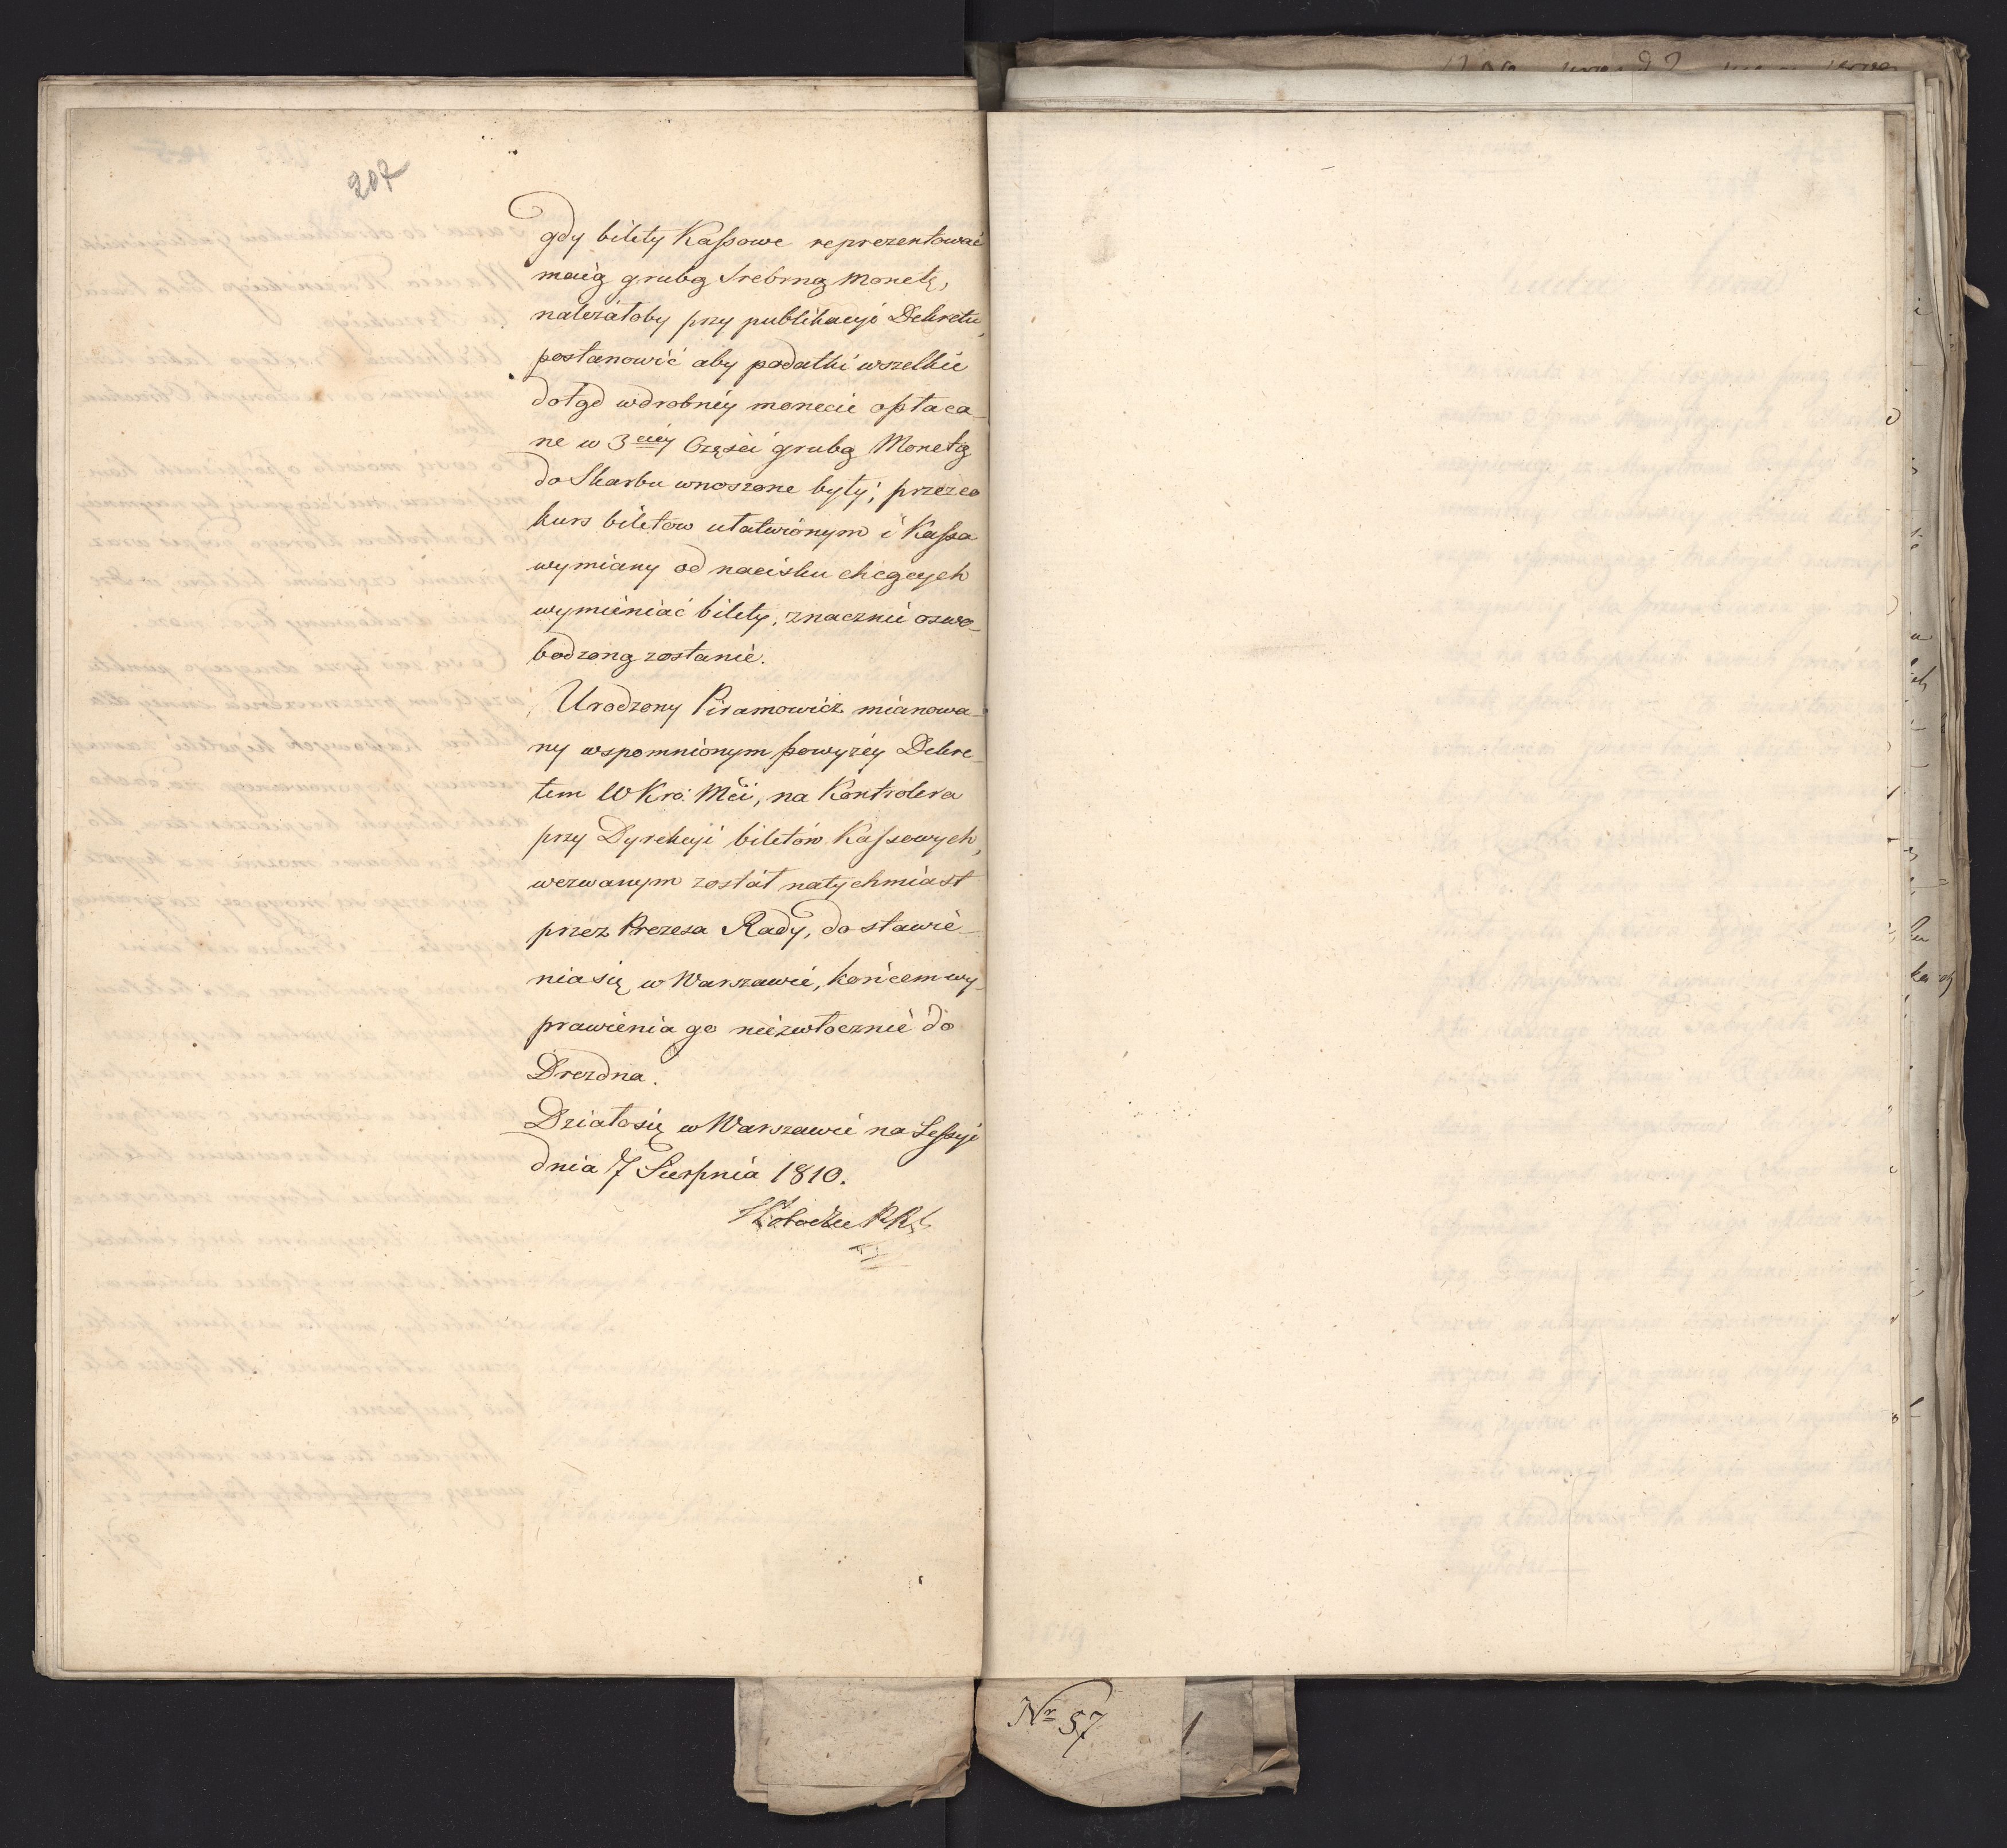 207
gdy bilety Kassowe reprezentować
maią grubą Srebrną Monetę,
należałoby przy publikacyi Dekretu,
postanowić aby podatki wszelkie
dotąd wdrobnéy monecie opłaca_
ne w 3ciéy Części grubą Monetą
do Skarbu wnoszone były; przez co
kurs biletów ułatwionym i Kassa
wymiany od nacisku chcących
wymieniać bilety, znacznie oswo_
bodzoną zostanie.
Urodzony Piramowicz mianowa_
ny wspomnionym powyżéy Dekre_
tem WKró: Mći, na Kontrolera
przy Dyrekcyi biletów Kassowych,
wezwanym został natychmiast
przez Prezesa Rady, do stawie_
nia się w Warszawie, końcem wy_
prawienia go niezwłocznie do
Drezdna.
Działo się w Warszawie na Sessyi
dnia 7 Sierpnia 1810.
Nr 57